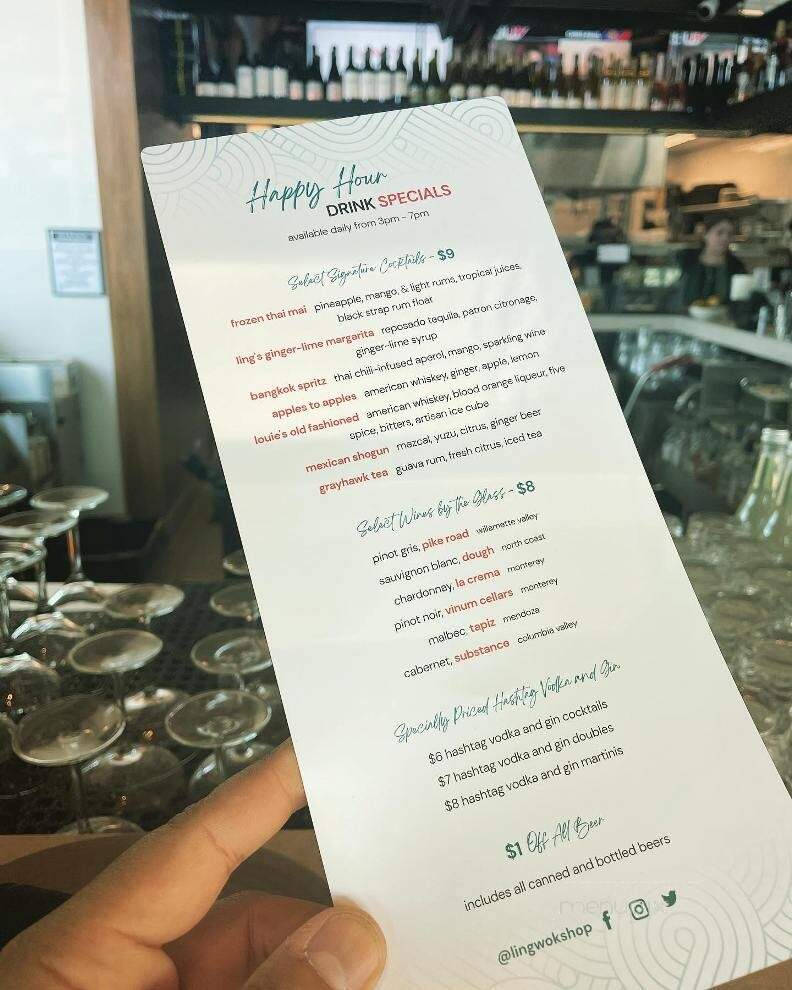 Happy Hour
DRINK SPECIALS
available daily from 3pm - 7pm
Select Signature Cocktails - $9
frozen thai mai pineapple, mango, & light rums, tropical juices,
black strap rum float
ling's ginger-lime margarita reposado tequila, patron citronage,
ginger-lime syrup
bangkok spritz thai chili-infused aperol, mango, sparkling wine
apples to apples american whiskey, ginger, apple, lemon
louie's old fashioned american whiskey, blood orange liqueur, five
spice, bitters, artisan ice cube
mexican shogun mezcal, yuzu, citrus, ginger beer
grayhawk tea guava rum, fresh citrus, iced tea
Select Wines by the Glass - $8
pinot gris, pike road willamette valley
sauvignon blanc, dough north coast
chardonnay, la crema monterey
pinot noir, vinum cellars monterey
malbec, tapiz mendoza
cabernet, substance columbia valley
Specially Priced Hashtag Vodka and Gin
$6 hashtag vodka and gin cocktails
$7 hashtag vodka and gin doubles
$8 hashtag vodka and gin martinis
$1 Off All Beer
includes all canned and bottled beers
@lingwokshop